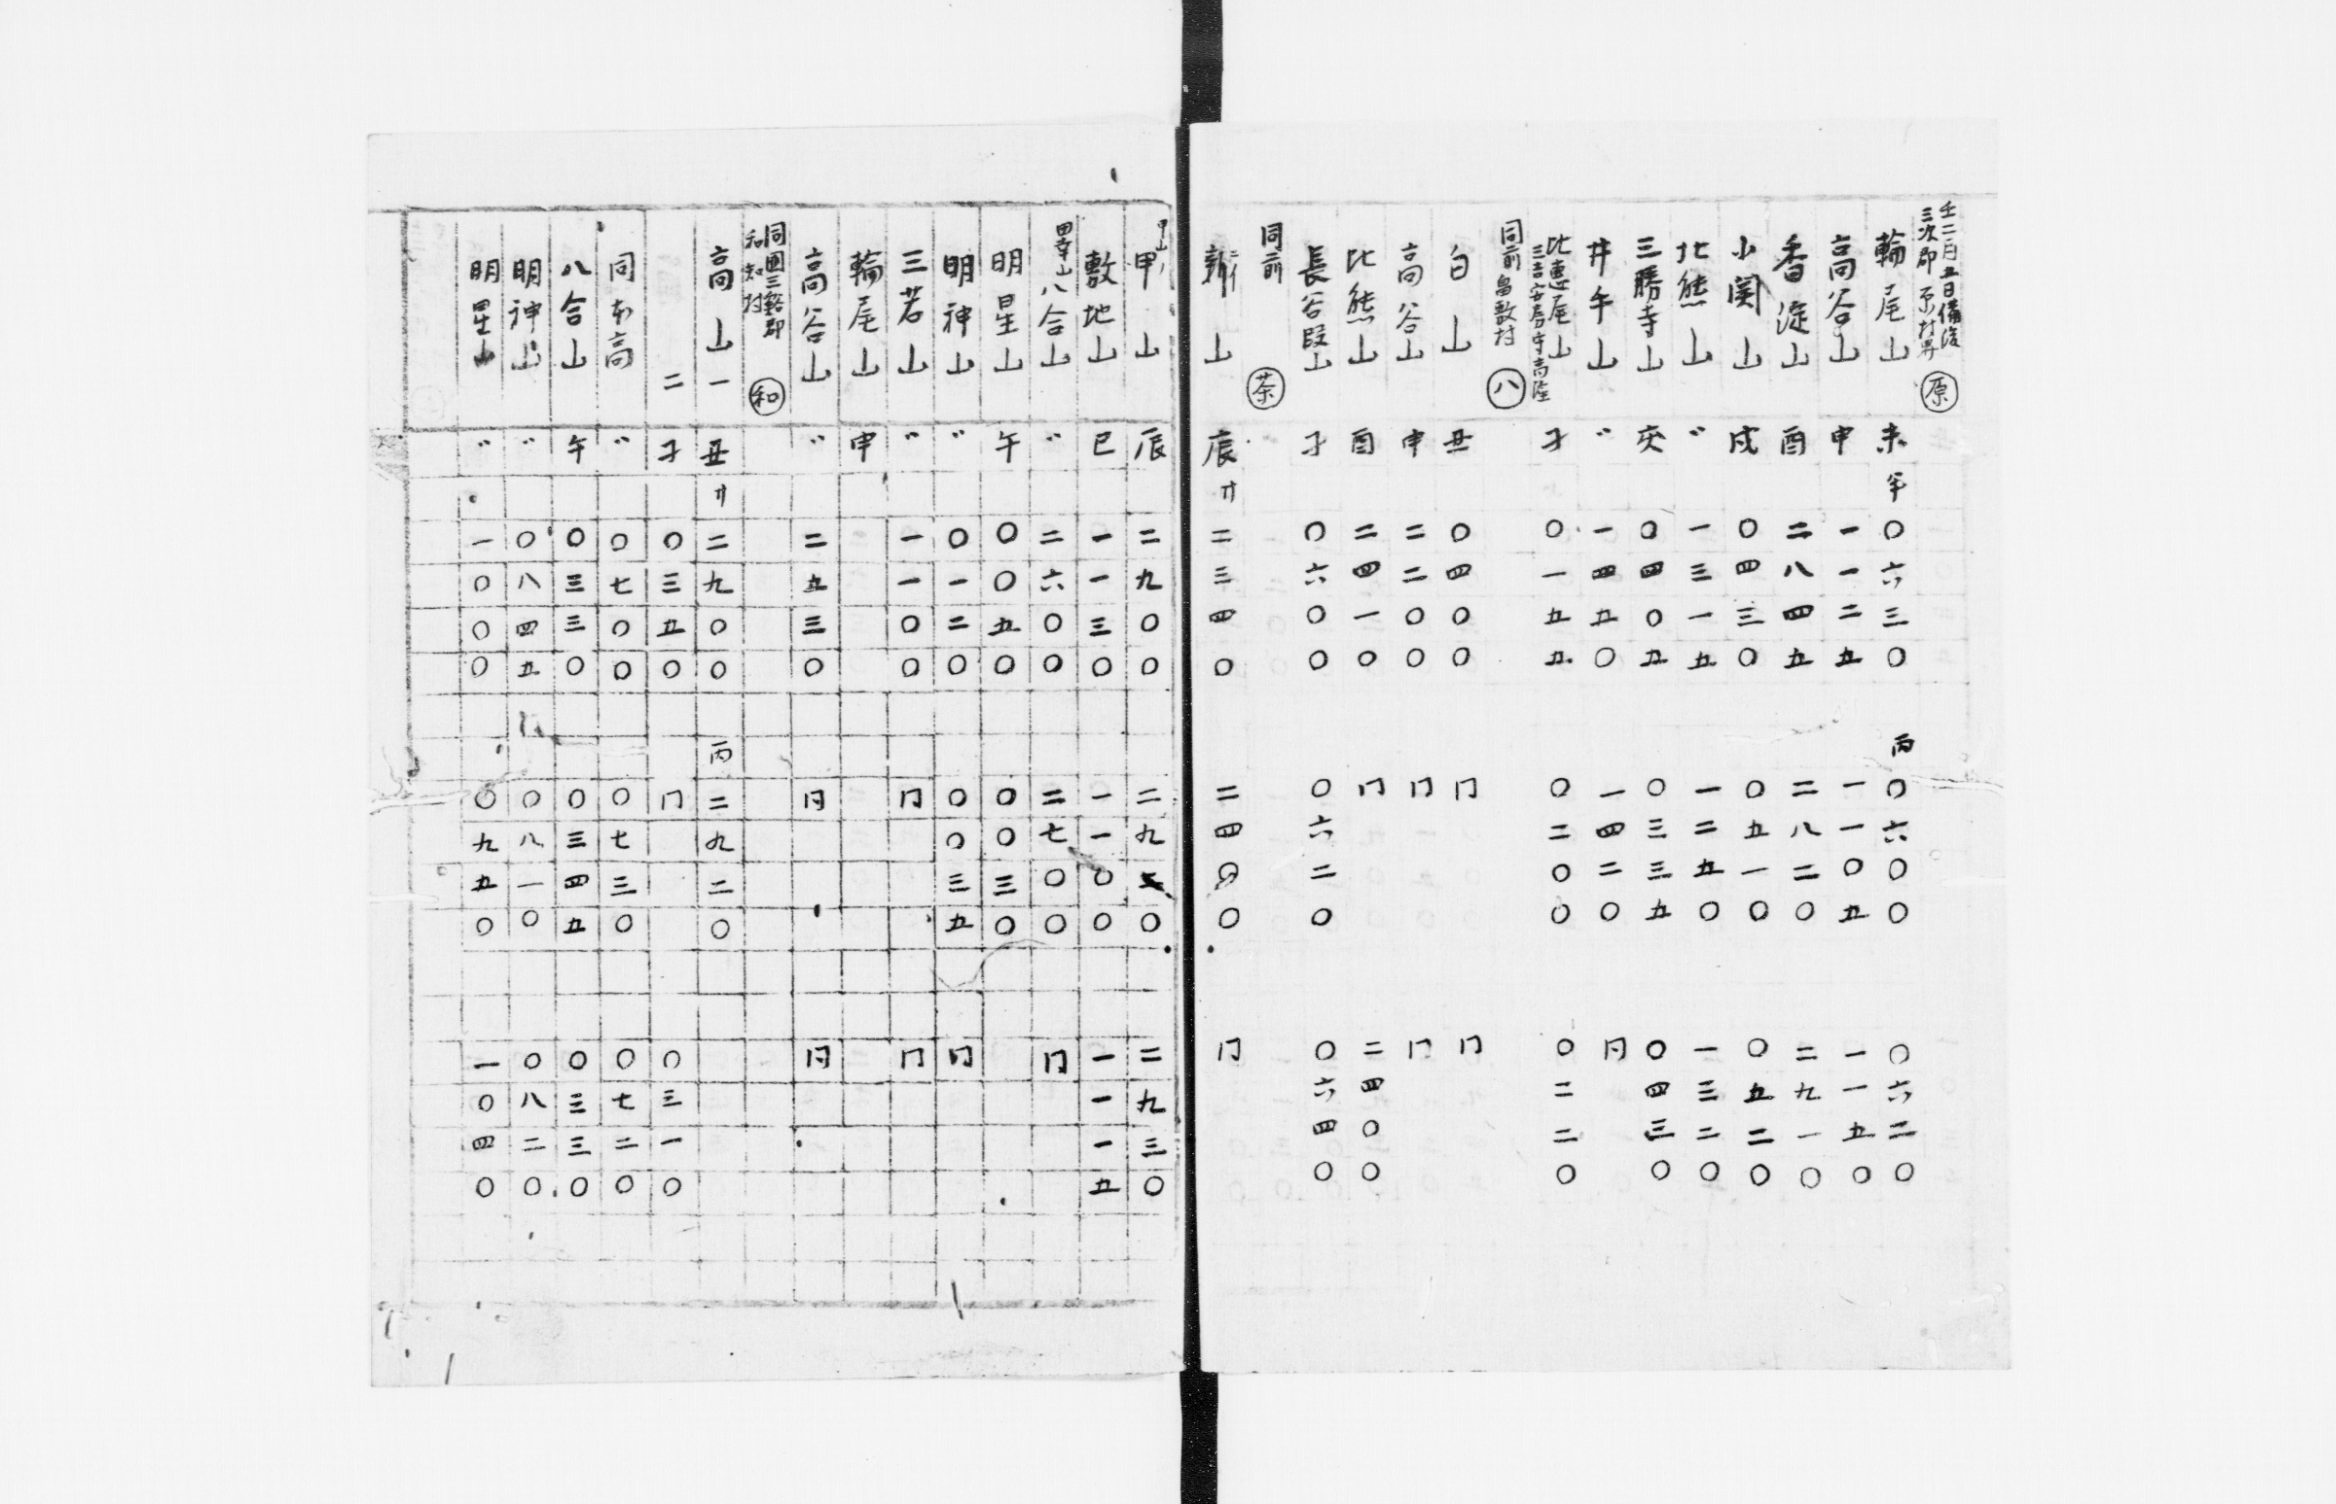 壬二月五日備後
三次郡原村界 原
輪尾山 未 半 〇六三〇 丙 〇六〇〇 〇六二〇
高谷山 申 一一二五 一一〇五 一一五〇
香淀山 酉 二八四五 二八二〇 二九一〇
小関山 戌 〇四三〇 〇五一〇 〇五二〇
比熊山 〃 一三一五 一二五〇 一三二〇
三勝寺山 亥 〇四〇五 〇三三五 〇四三〇
井午山 〃 一四五〇 一四二〇 同
比恵尾山 子 〇一五五 〇二〇〇 〇二二〇
三吉安房守高
同前畠敷村 八
白山 丑 〇四〇〇 同 同
高谷山 申 二二〇〇 同 同
比熊山 酉 二四一〇 同 二四〇〇
長谷段山 子 〇六〇〇 〇六二〇 〇六四〇
同前 茶
山 辰 廿 二三四〇 二四〇〇 同
甲山 辰 二九〇〇 二九 〇 二九三〇
敷地山 巳 一一三〇 一一〇〇 一一一五
八合山 〃 二六〇〇 二七〇〇 同
明星山 午 〇〇五〇 〇〇三〇
明神山 〃 〇一二〇 〇〇三五 同
三若山 〃 一一〇〇 同 同
輪尾山 申
高谷山 〃 二五三〇 同 同
同国三谿郡
和知村 和
高山一 丑 廿 二九〇〇 丙 二九二〇
二 子 〇三五〇 同 〇三一〇
同本高 〃 〇七〇〇 〇七三〇 〇七二〇
八合山 午 〇三三〇 〇三四五 〇三三〇
明神山 〃 〇八四五 〇八一〇 〇八二〇
明星山 〃 一〇〇〇 〇九五〇 一〇四〇